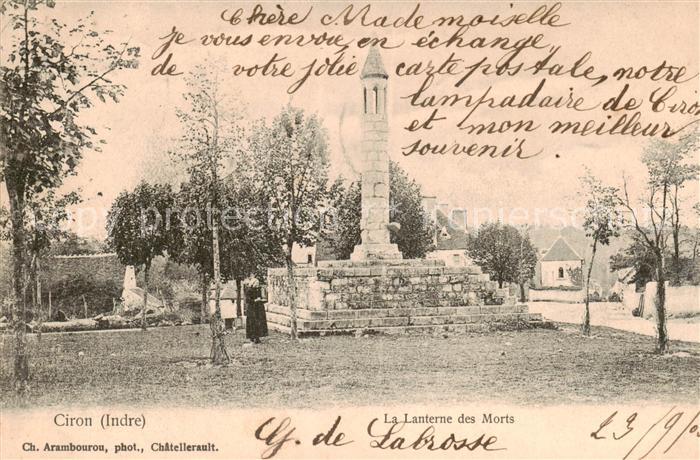 Chère Mademoiselle
je vous envoie en échange,
de votre jolie carte postale, notre
lampadaire de Ciron
et mon meilleur
souvenir.
Copyright papiersch
Ciron (Indre)
La Lanterne des Morts
Ch. Arambourou, phot., Châtellerault.
G. de Labrosse
23/9/0